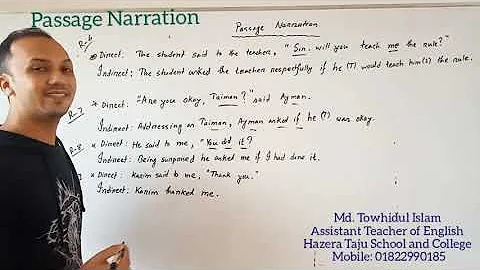 Passage Narration
Passage Narration
R-6
Direct: The student said to the teacher, "Sir, will you teach me the rule?"
Indirect: The student asked the teacher respectfully if he (T) would teach him(s) the rule.
R-7
* Direct: "Are you okay, Taiman?" said Ayman.
Indirect: Addressing as Taiman, Ayman asked if he (T) was okay.
R-8
* Direct: He said to me, "You did it?
Indirect: Being surprised he asked me if I had done it.
* Direct: Karim said to me, "Thank you."
Indirect: Karim thanked me.
Md. Towhidul Islam
Assistant Teacher of English
Hazera Taju School and College
Mobile: 01822990185